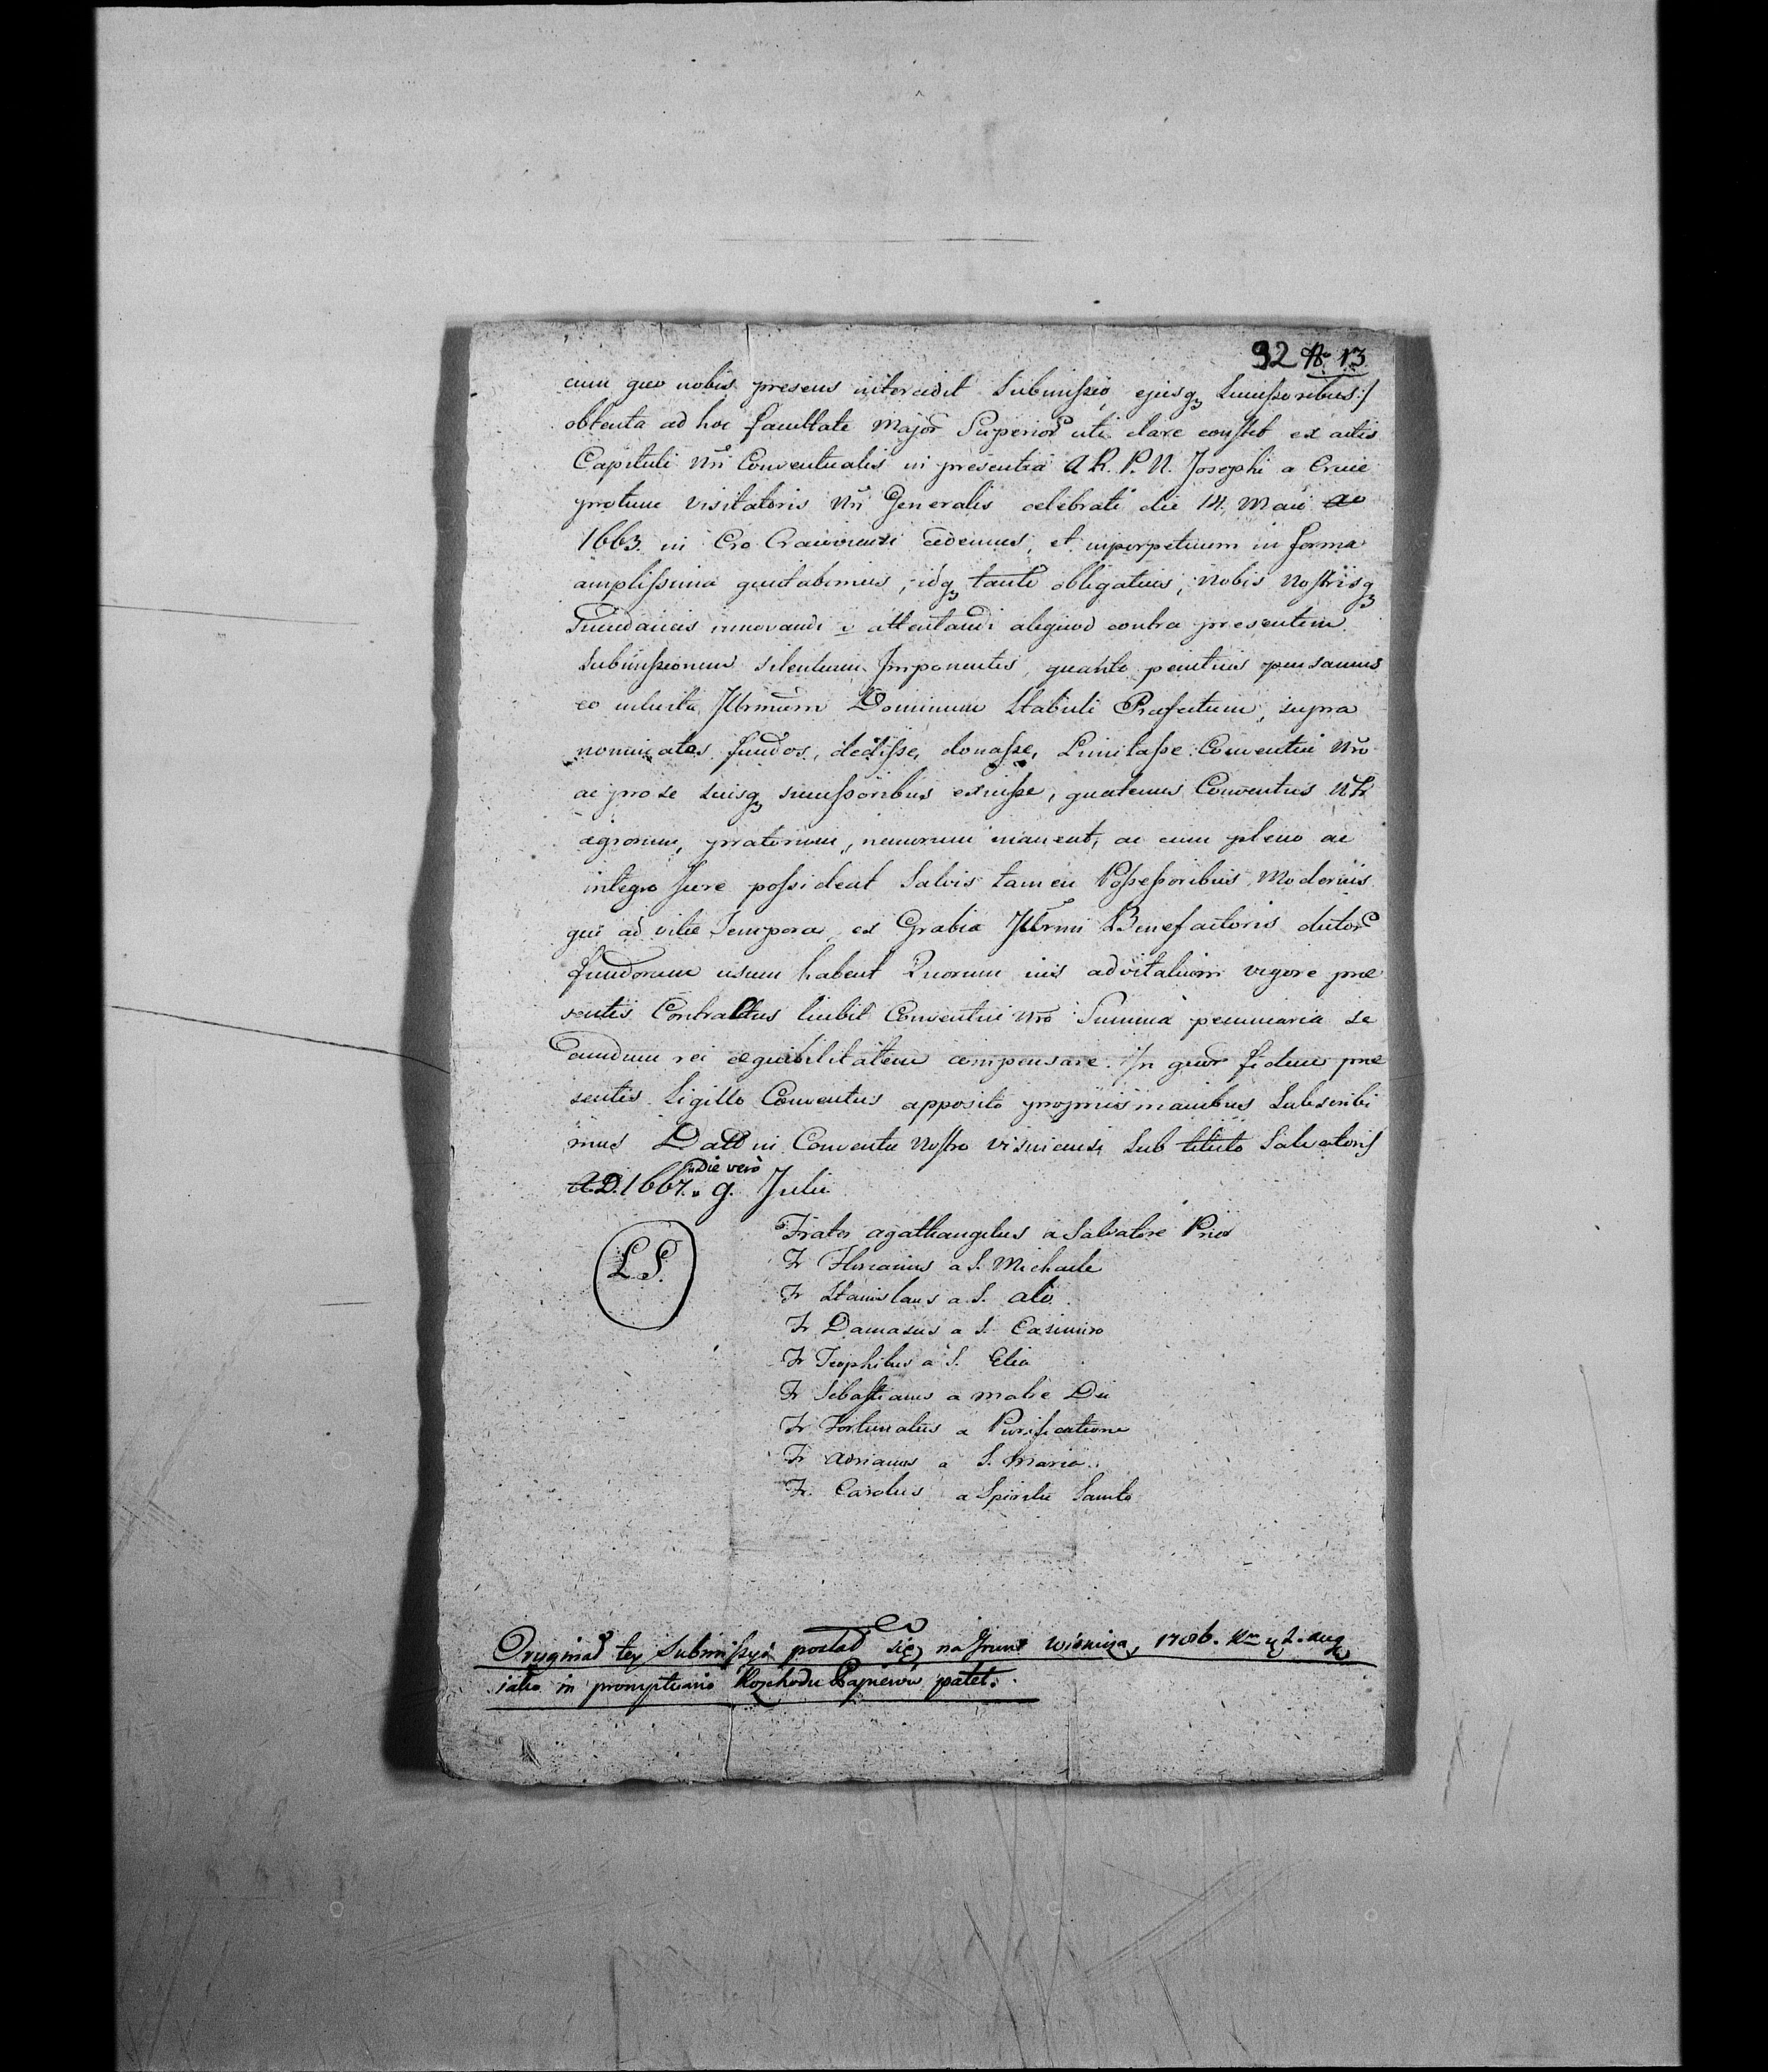 92 No 13
cum quo nobis presens intercedit Submissio, ejusq3 Successoribus:/
obtenta ad hoc facultate Major Superior uti clare constet ex actis
Capituli Nri Conventualis in presentia A R. P. N. Josephi a Cruce
protunc visitatoris Nri Generalis celebrati die 14. Maii ao
1663. in Cro Cracoviensi cedemus, et inperpetuum in forma
amplissima quietabimus, idq3 tanto obligatius, nobis Nostrisq3
innovandi v attentandi aliquod contra presentem
Submissionem silentium Imponentes, quanto penitius pensamus
eo inducta Illrmum Dominum Stabuli Prefectum, supra
nominatos fundos, dedisse, donasse, Limitasse Conventui Nro
ac pro se suisq3 successoribus exuisse, quatenus Conventus Nr
agrorum, pratorum, nemorum maneat, ac cum pleno ac
integro Jure possideat Salvis tamen Possessoribus Modernis
qui ad vitæ Tempora, ex Gratia Illrmi Benefactoris dictor
fundorum usum habent Quorum ius advitalium vigore præ
sentis Contractus licebit Conventui Nro Summa pecuniaria se
cundum rei æquibilitatem compensare. In quor fidem præ
sentes Sigillo Conventus apposito propriis manibus Subscribi
mus Datt in Conventu Nostro Visnicensi Sub titulo Salvatoris
Die vero
A.D. 1667. 9. Julii
L.S.
Frater Agathangelus a Salvatore Prior
Fr Florianus a S. Michaele
Fr Stanislaus a S. Alb.
Fr Damasus a S. Casimiro
Fr Teophilus a S. Elia
Fr Sebastianus a Matre Dei
Fr Fortunatus a Purificatione
Fr Adrianus a S. Maria.
Fr. Carolus a Spiritu Sancto
Oryginał tey Submissyi posłał się na Grunt Wisnicza, 1786. 2. Aug
iako in promptuario Rozchodu Papierów patet.